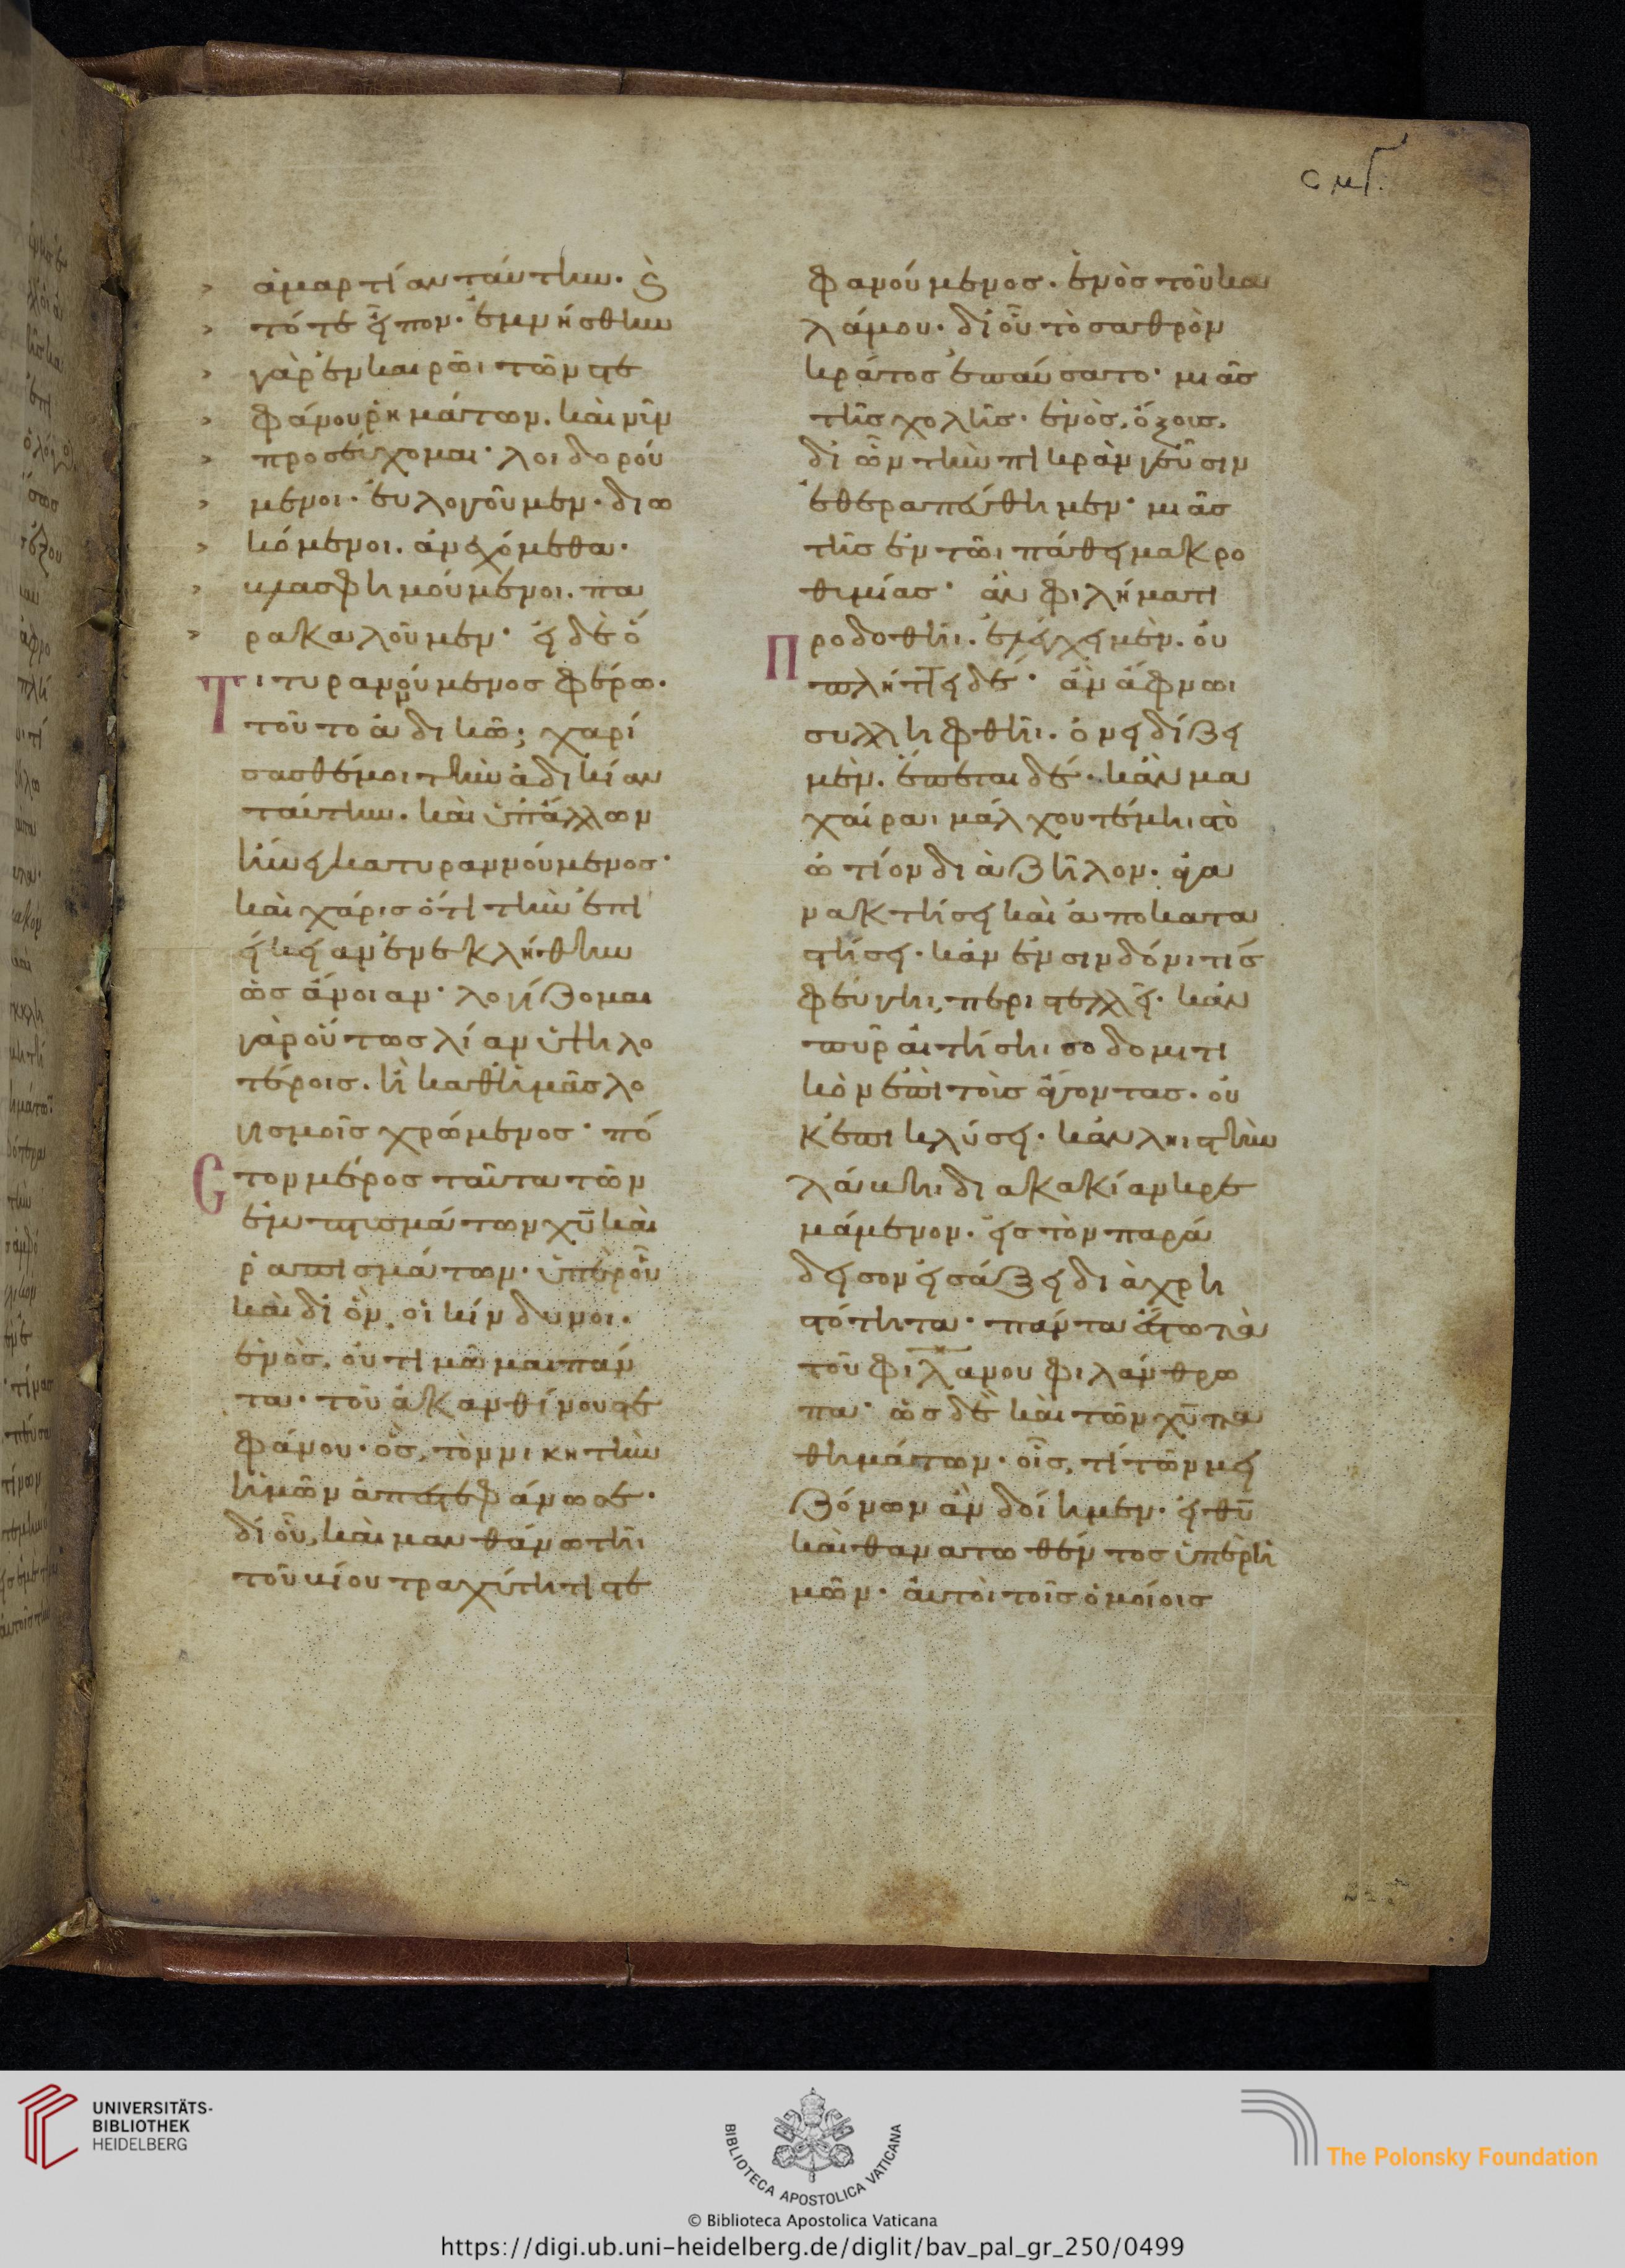 σμγ.
ἁμαρτίαν ταύτην. ϗ
τότε εἶπον· ἐμνήσθην
γὰρ ἐν καιρῶι τῶν στε
φάνου ῥημάτων. καὶ νῦν
προσεύχομαι· λοιδορού
μενοι. εὐλογοῦμεν. διω
κόμενοι. ἀνεχόμεθα.
βλασφημούμενοι. πα
ρακαλοῦμεν· εἰ δὲ ὅ
τι τυραννούμενος φέρω.
τοῦτο ἀδικῶ; χαρί
σασθέ μοι τὴν ἀδικίαν
ταύτην. καὶ ὑπ' ἄλλων
ἤνεγκα τυραννούμενος·
καὶ χάρις ὅτι τὴν ἐπι
είκειαν ἐνεκλήθην
ὡς ἄνοιαν· λογίζομαι
γὰρ οὕτως λίαν ὑψηλο
τέροις. ἢ καθ' ἡμᾶς λο
γισμοῖς χρώμενος· πό
στον μέρος ταῦτα τῶν
ἐμπτυσμάτων χῦ καὶ
ῥαπισμάτων. ὑπὲρ οὗ
καὶ δι' ὃν, οἱ κίνδυνοι.
ἑνὸς, οὐ τιμῶμαι πάν
τα· τοῦ ἀκανθίνου στε
φάνου. ὃς, τὸν νικητὴν
ἡμῶν ἀπεστεφάνωσε·
δι' οὗ, καὶ μανθάνω τῆι
τοῦ βίου τραχύτητι στε
φανούμενος. ἑνὸς τοῦ κα
λάμου. δι' οὗ τὸ σαθρὸν
κράτος ἐπαύσατο· μιᾶς
τῆς χολῆς. ἑνὸς, ὄξους.
δι' ὧν τὴν πικρὰν γεῦσιν
ἐθεραπεύθημεν· μιᾶς
τῆς ἐν τῶι πάθει μακρο
θυμίας· ἂν φιλήματι
προδοθῆι. ἐλέγχει μὲν. οὐ
πλήττει δέ· ἂν ἄφνωι
συλληφθῆι. ὀνειδίζει
μὲν. ἕπεται δέ· κἂν μα
χαίραι μάλχου τέμηι τὸ
ὠτίον διὰ ζῆλον. ἀγα
νακτήσει καὶ ἀποκατα
στήσει. κἂν ἐν σινδόνι τίς
φεύγηι, περιστελλεῖ. κἂν
πῦρ αἰτήσηι σοδομιτι
κὸν ἐπὶ τοὺς ἄγοντας. οὐ
κ ἐπικλύσει. κἂν ληιστὴν
λάβηι διὰ κακίαν κρε
μάμενον. εἰς τὸν παρά
δεισον εἰσάξει διὰ χρη
στότητα· πάντα ἔστω τὰ
τοῦ φιλανου φιλάνθρω
πα· ὡς δὲ καὶ τῶν χῦ πα
θημάτων. οἷς, τί τῶν μει
ζόνων ἂν δοίημεν. εἰ θῦ
καὶ θανατωθέντος ὑπὲρ ἡ
μῶν. αὐτοὶ τοῖς ὁμοίοις
UNIVERSITÄTS-
BIBLIOTHEK
HEIDELBERG
BIBLIOTECA APOSTOLICA VATICANA
The Polonsky Foundation
© Biblioteca Apostolica Vaticana
https://digi.ub.uni-heidelberg.de/diglit/bav_pal_gr_250/0499